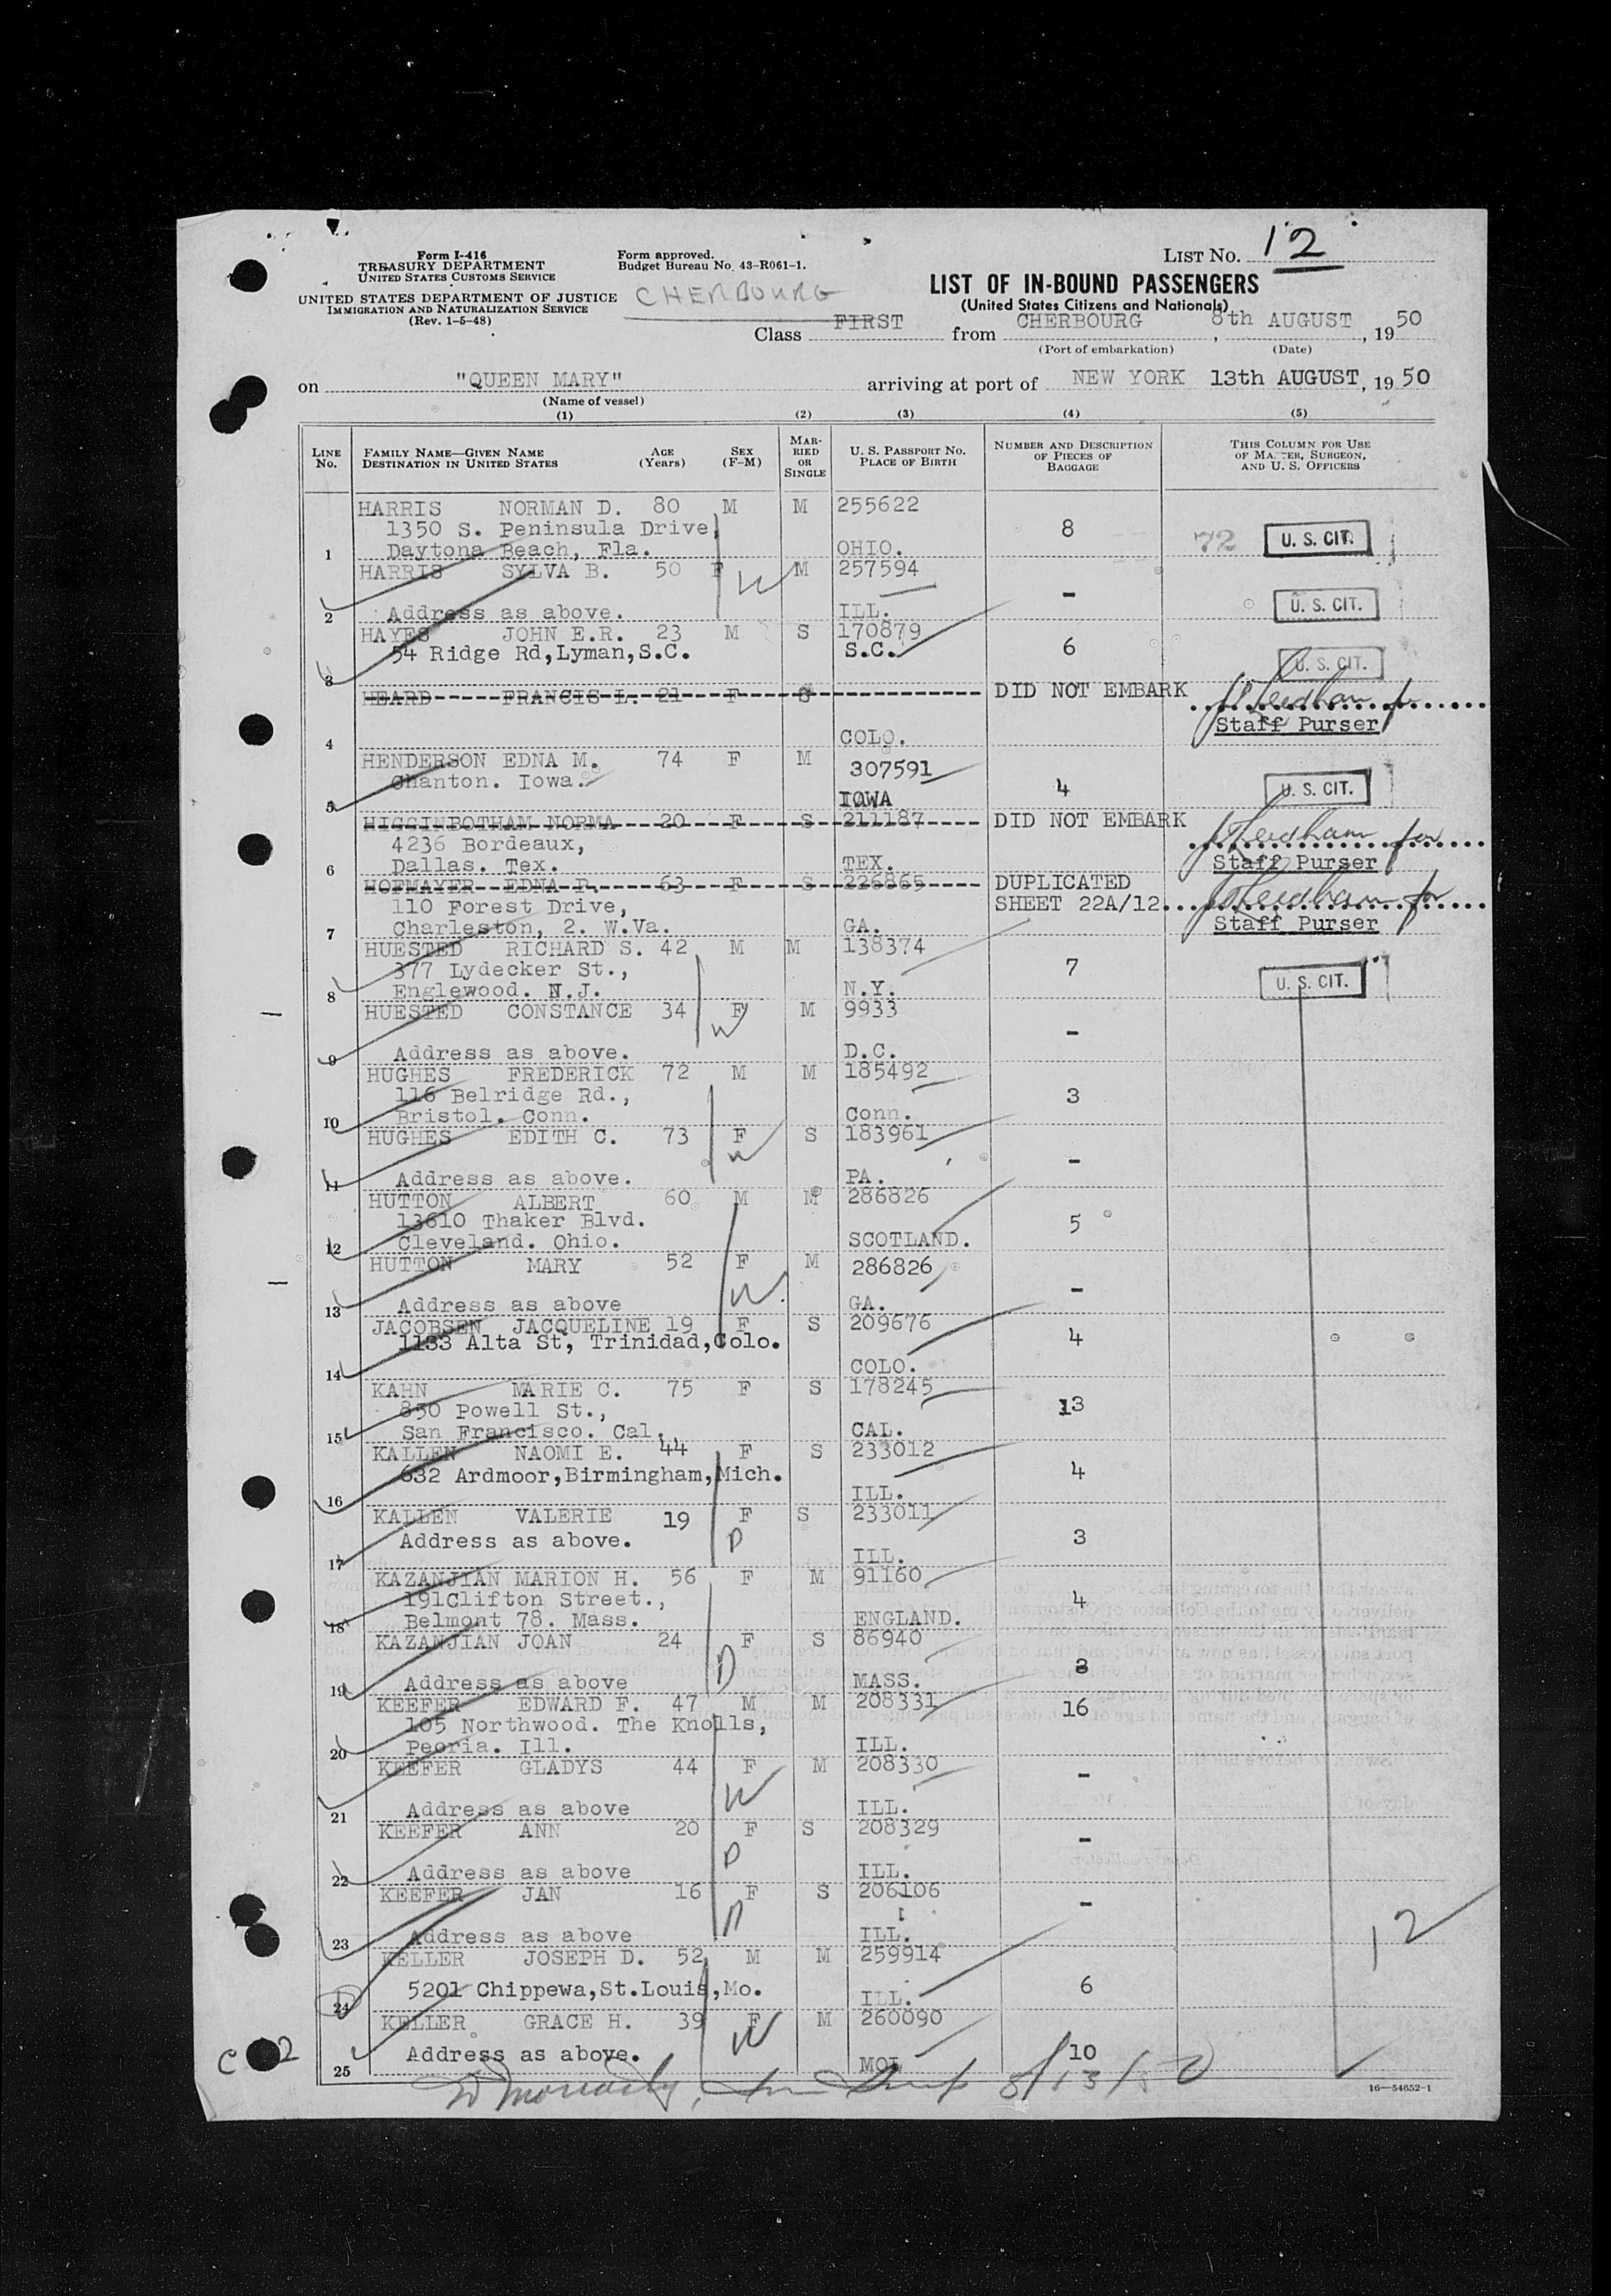 LIST No. 12
Form I-416
TREASURY DEPARTMENT
UNITED STATES CUSTOMS SERVICE
UNITED STATES DEPARTMENT OF JUSTICE
IMMIGRATION AND NATURALIZATION SERVICE
(Rev. 1-5-48)
Form approved.
Budget Bureau No. 43-R061-1.
CHERBOURG
LIST OF IN-BOUND PASSENGERS
(United States Citizens and Nationals)
Class FIRST from CHERBOURG, 8th AUGUST, 1950
(Port of embarkation) (Date)
on "QUEEN MARY" arriving at port of NEW YORK 13th AUGUST, 1950
(Name of vessel)
(1) (2) (3) (4) (5)
LINE No. FAMILY NAME—GIVEN NAME DESTINATION IN UNITED STATES AGE (Years) SEX (F-M) MARRIED OR SINGLE U. S. PASSPORT No. PLACE OF BIRTH NUMBER AND DESCRIPTION OF PIECES OF BAGGAGE THIS COLUMN FOR USE OF MASTER, SURGEON, AND U. S. OFFICERS
HARRIS NORMAN D. 80 M M 255622
1350 S. Peninsula Drive, 8
1 Daytona Beach, Fla. OHIO. 72 U. S. CIT.
HARRIS SYLVA B. 50 F W M 257594
-
2 Address as above. ILL. U. S. CIT.
HAYES JOHN E.R. 23 M S 170879
54 Ridge Rd,Lyman,S.C. S.C. 6
3 U. S. CIT.
HEARD FRANCIS L. 21 F S DID NOT EMBARK
Staff Purser
4 COLO.
HENDERSON EDNA M. 74 F M 307591
Chanton. Iowa. 4
5 IOWA U. S. CIT.
HIGGINBOTHAM NORMA 20 F S 211187 DID NOT EMBARK
4236 Bordeaux,
6 Dallas. Tex. TEX. Staff Purser
HOFMAYER EDNA P. 63 F S 226865 DUPLICATED
110 Forest Drive, SHEET 22A/12
7 Charleston, 2. W.Va. GA. Staff Purser
HUESTED RICHARD S. 42 M M 138374
377 Lydecker St., 7
8 Englewood. N.J. N.Y. U. S. CIT.
HUESTED CONSTANCE 34 F W M 9933
-
9 Address as above. D.C.
HUGHES FREDERICK 72 M M 185492
116 Belridge Rd., 3
10 Bristol. Conn. Conn.
HUGHES EDITH C. 73 F W S 183961
-
11 Address as above. PA.
HUTTON ALBERT 60 M M 286826
13610 Thaker Blvd. 5
12 Cleveland. Ohio. SCOTLAND.
HUTTON MARY 52 F W M 286826
-
13 Address as above GA.
JACOBSEN JACQUELINE 19 F S 209676
1133 Alta St, Trinidad,Colo. 4
14 COLO.
KAHN MARIE C. 75 F S 178245
850 Powell St., 13
15 San Francisco. Cal. CAL.
KALLEN NAOMI E. 44 F S 233012
632 Ardmoor,Birmingham,Mich. 4
16 ILL.
KALLEN VALERIE 19 F S 233011
Address as above. D 3
17 ILL.
KAZANJIAN MARION H. 56 F M 91160
191Clifton Street., 4
18 Belmont 78. Mass. ENGLAND.
KAZANJIAN JOAN 24 F S 86940
D 3
19 Address as above MASS.
KEEFER EDWARD F. 47 M M 208331
105 Northwood. The Knolls, 16
20 Peoria. Ill. ILL.
KEEFER GLADYS 44 F M 208330
W -
21 Address as above ILL.
KEEFER ANN 20 F S 208329
D -
22 Address as above ILL.
KEEFER JAN 16 F S 206106
D -
23 Address as above ILL.
KELLER JOSEPH D. 52 M M 259914 12
24 5201 Chippewa,St.Louis,Mo. ILL. 6
KELLER GRACE H. 39 F W M 260090
Address as above. 10
25 8/13/50
16—54652-1